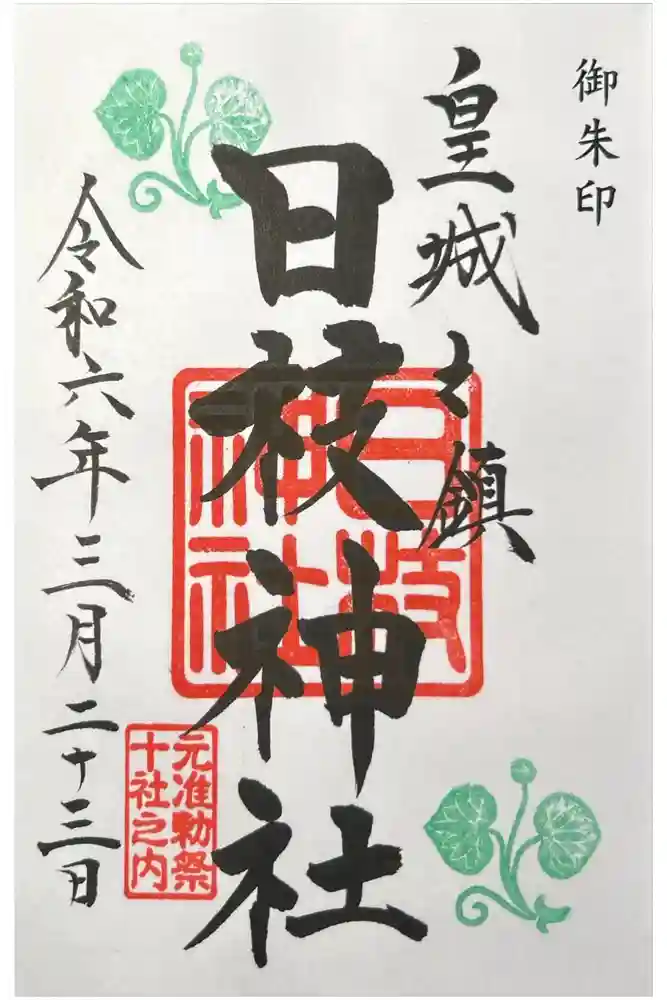 御朱印
皇城之鎮
日枝神社
日枝
神社
元准勅祭
十社之内
令和六年三月二十三日